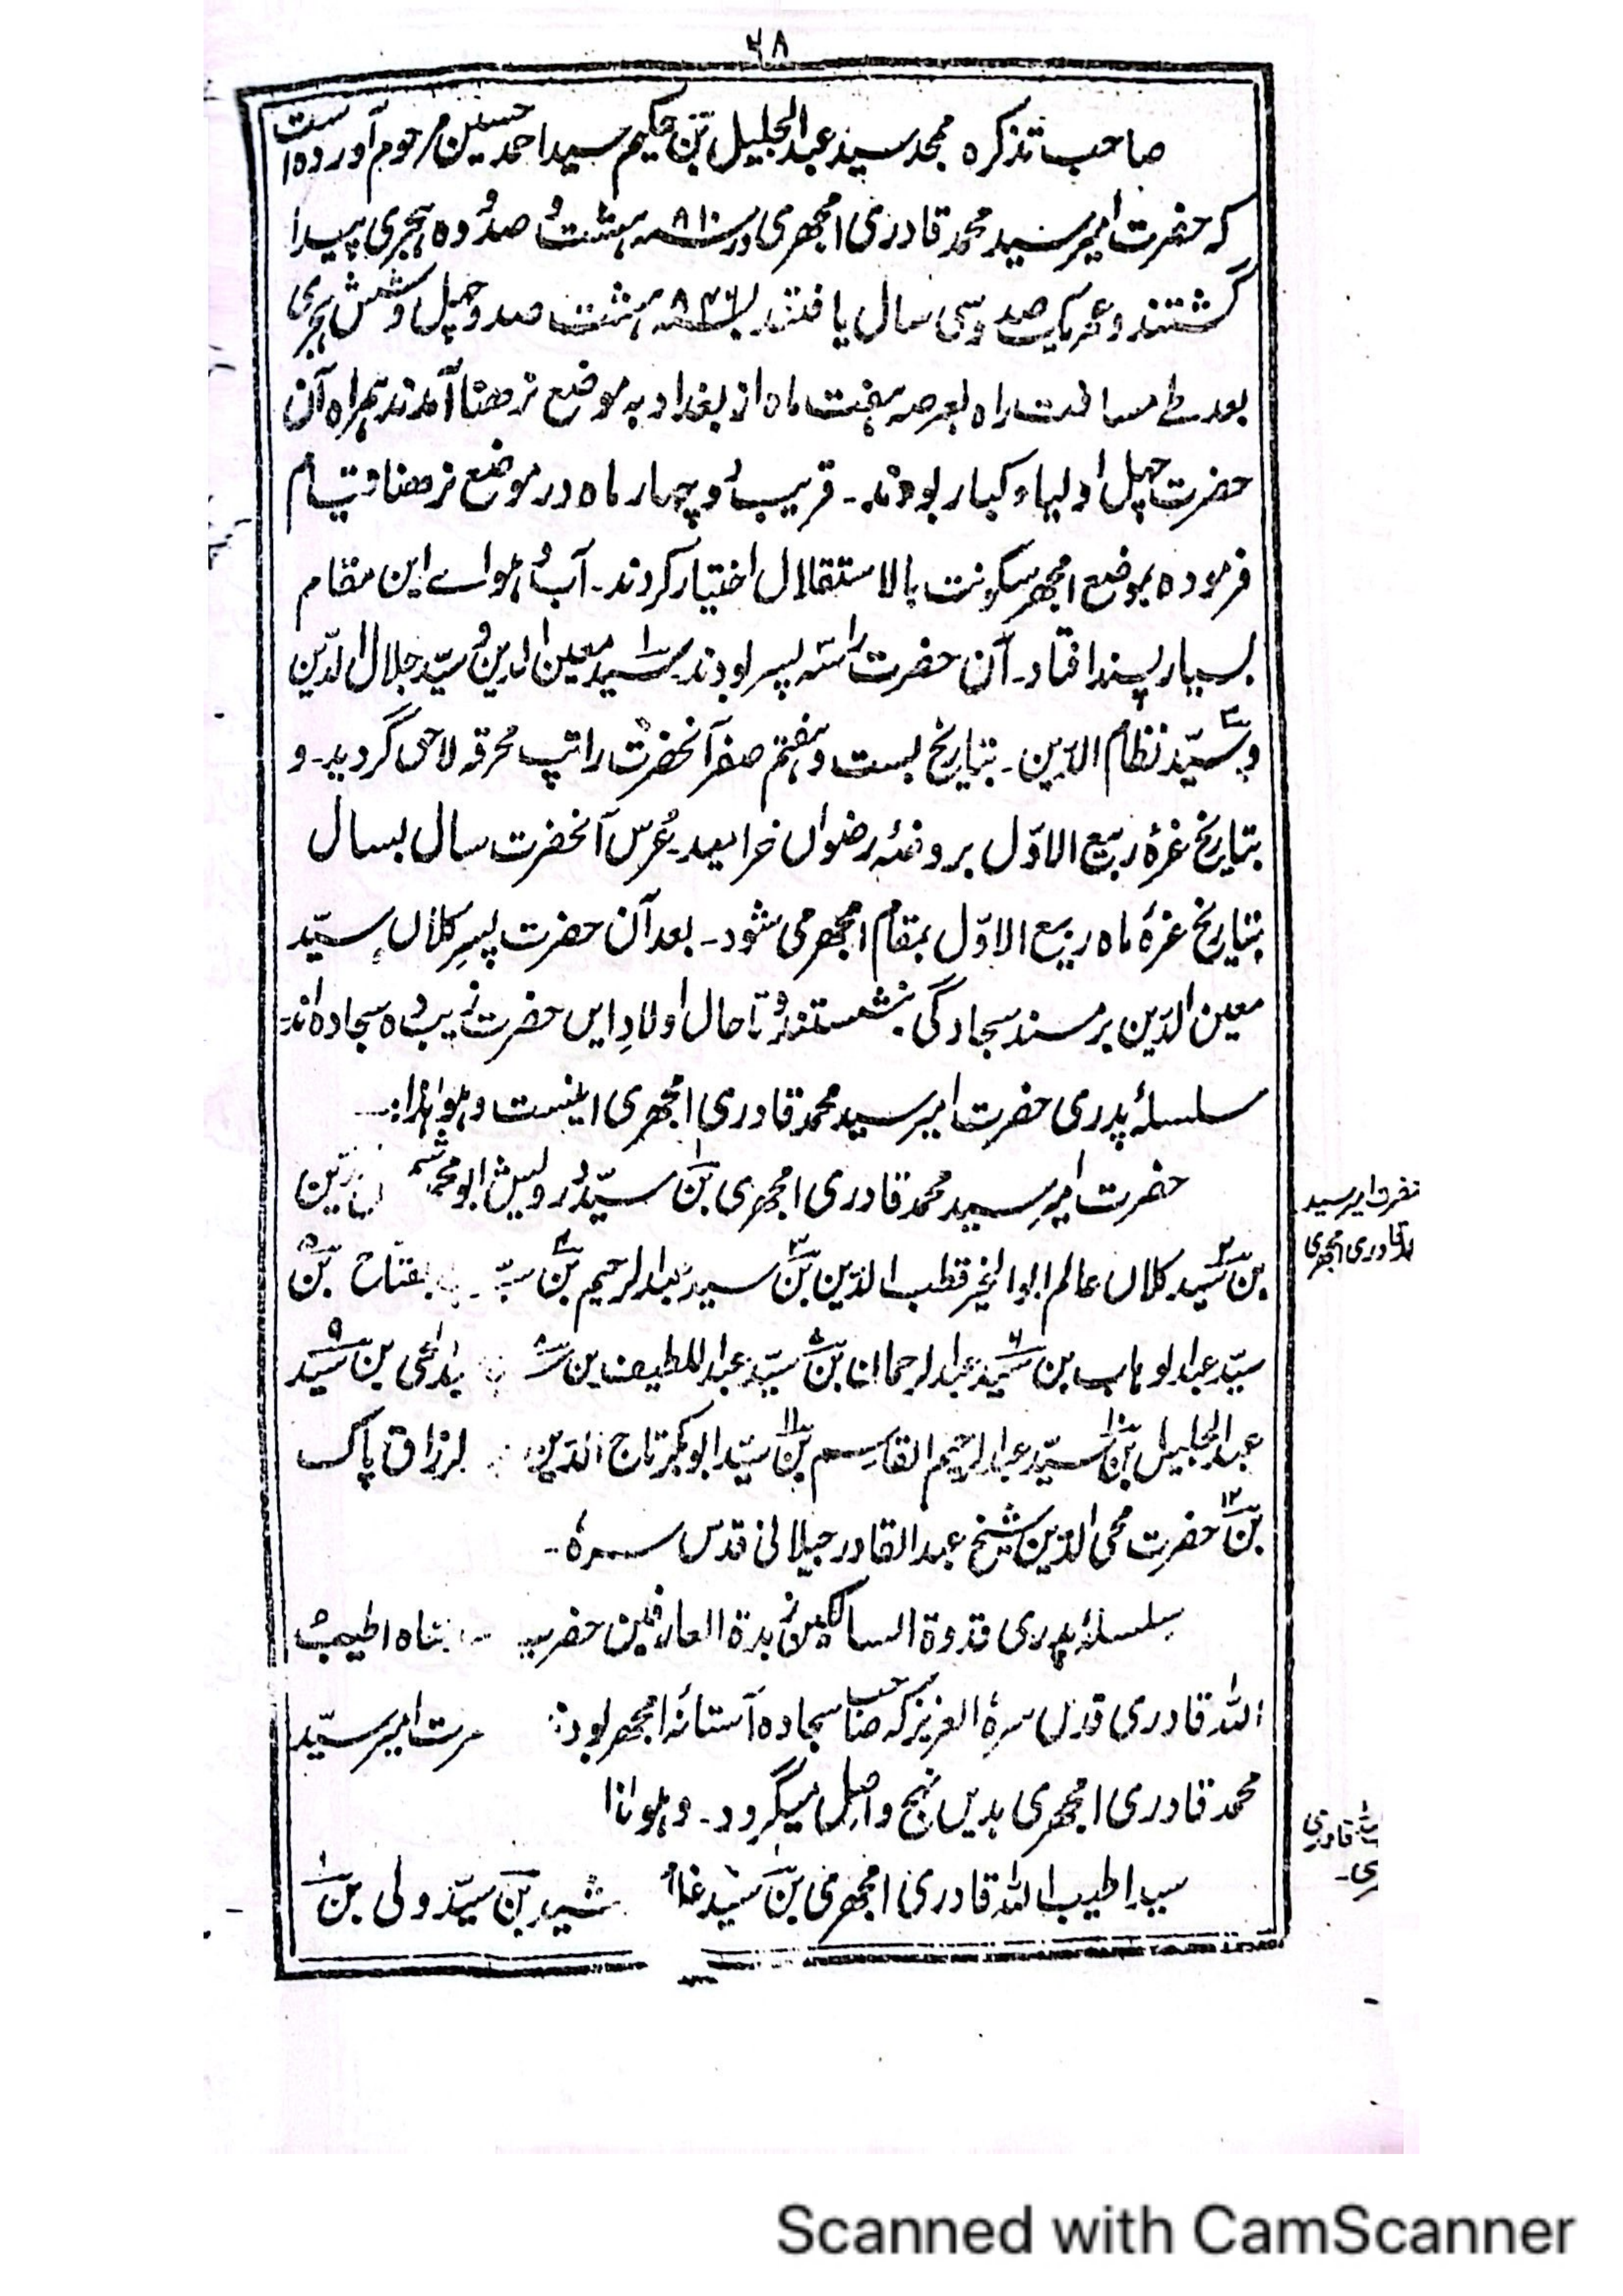 ۶۸
صاحب تذکرہ محمد سید عبدالجلیل بن حکیم سید احمد حسین مرحوم آورده است
کہ حضرت امیر سید محمد قادری امجھری در سنہ ۸۱۰ ہشت و صد و ده ہجری پیدا
گشتند و عمر یک صد و سی سال یافتند۔ بسنہ ۸۴۶ ہشت صد و چہل و شش ہجری
بعد طے مسافت راه بعرصہ ہفت ماه از بغداد بہ موضع نرھنا آمدند ہمراه آن
حضرت چہل اولیاء کبار بودند۔ قریب دو چہار ماه در موضع نرھنا قیام
فرموده بموضع امجھر سکونت بالاستقلال اختیار کردند۔ آب و ہواے این مقام
بسیار پسند افتاد۔ آن حضرت را سہ پسر بودند۔ ۱ سید معین الدین و ۲ سیّد جلال الدّین
و ۳ سیّد نظام الدّین۔ بتاریخ بست و ہفتم صفر آنحضرت را تپ محرقہ لاحق گردید۔ و
بتاریخ غرۂ ربیع الاوّل بروضۂ رضواں خرامید۔ عُرس آنحضرت سال بسال
بتاریخ غرۂ ماه ربیع الاوّل بمقام امجھر می شود۔ بعد آن حضرت پسرِ کلاں سیّد
معین الدّین بر مسند سجادگی بنشستند و تا حال اولادِ ایں حضرت زیب ده سجاده اند۔
سلسلۂ پدری حضرت امیر سید محمد قادری امجھری اینست و ہو ہٰذا:۔
حضرت امیر سید محمد قادری امجھری بن ۱ سیّد درویش ابو محمد
بن ۲ سیّد کلاں عالم ابوالخیر قطب الدّین بن ۳ سید عبدالرحیم بن ۴ بن ۵
سیّد عبدالوہاب بن ۶ سیّد عبدالرحمان بن سیّد عبداللطیف بن ۸ بن ۹ سیّد
عبدالجلیل بن ۱۰ سیّد عبدالرحیم القاسم بن ۱۱ سیّد ابوبکر تاج الدّین لرزاق پاک
بن ۱۲ حضرت محی الدّین شیخ عبدالقادر جیلانی قدس سرہٗ۔
سلسلۂ پدری قدوۃ السالکین زبدۃ العارفین حضرت شاه اطیب
اللہ قادری قدس سرہٗ العزیز کہ صاحب سجاده آستانۂ امجھر بود امیر سیّد
محمد قادری امجھری بدیں نہج واصل میگردد۔ و ہو ہذا
سید اطیب اللہ قادری امجھری بن ۱ سیّد غلام بن سیّد ولی بن
حضرت امیر سید
قادری امجھری
قادری
Scanned with CamScanner